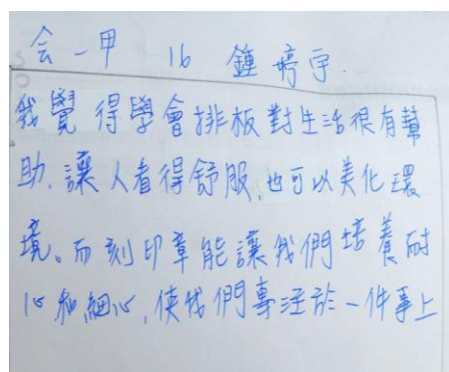 会一甲 16 鍾婷宇
我覺得學會排板對生活很有幫
助,讓人看得舒服,也可以美化環
境。而刻印章能讓我們培養耐
心和細心,使我們專注於一件事上